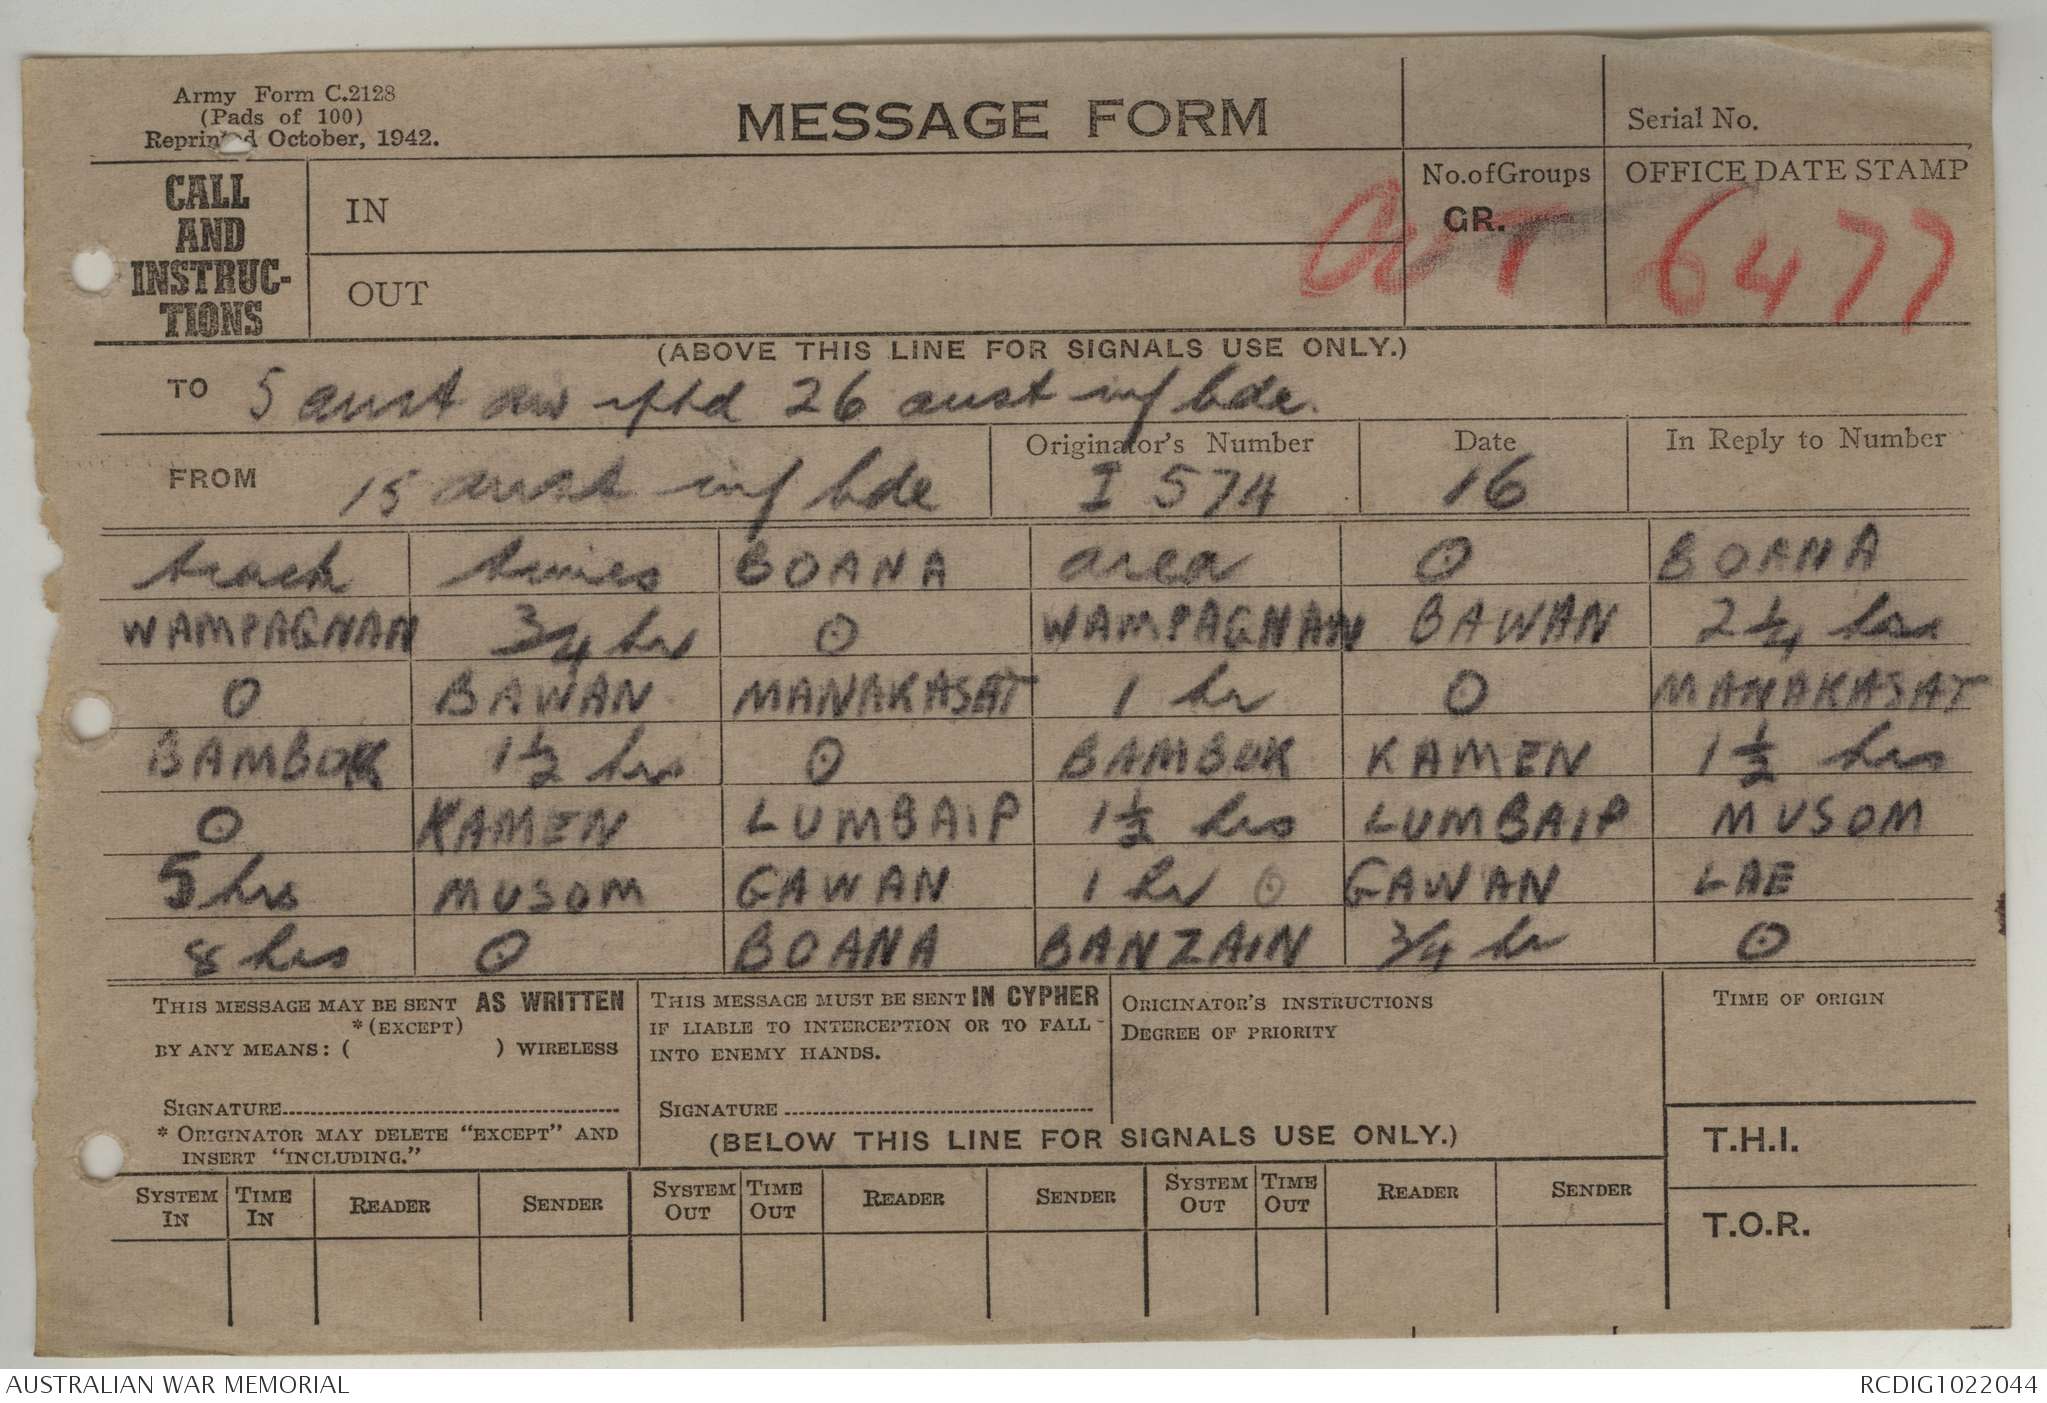 Army Form C.2128
(Pads of 100)
Reprinted October, 1942.
MESSAGE FORM
Serial No.
CALL AND INSTRUC-TIONS
IN
OUT
No.ofGroups
GR.
OFFICE DATE STAMP
OUT 6477
(ABOVE THIS LINE FOR SIGNALS USE ONLY.)
TO 5 aust div rptd 26 aust inf bde.
FROM 15 aust inf bde
Originator's Number I 574
Date 16
In Reply to Number
track times BOANA area ⊙ BOANA
WAMPAGNAN 3/4 hr ⊙ WAMPAGNAN BAWAN 2 1/4 hrs
⊙ BAWAN MANAKASAT 1 hr ⊙ MANAKASAT
BAMBOK 1 1/2 hrs ⊙ BAMBUK KAMEN 1 1/2 hrs
⊙ KAMEN LUMBAIP 1 1/2 hrs LUMBAIP MUSOM
5 hrs MUSOM GAWAN 1 hr ⊙ GAWAN LAE
8 hrs ⊙ BOANA BANZAIN 3/4 hr ⊙
THIS MESSAGE MAY BE SENT AS WRITTEN
*(EXCEPT)
BY ANY MEANS: ( ) WIRELESS
SIGNATURE
* ORIGINATOR MAY DELETE "EXCEPT" AND
INSERT "INCLUDING."
THIS MESSAGE MUST BE SENT IN CYPHER
IF LIABLE TO INTERCEPTION OR TO FALL
INTO ENEMY HANDS.
SIGNATURE
ORIGINATOR'S INSTRUCTIONS
DEGREE OF PRIORITY
TIME OF ORIGIN
(BELOW THIS LINE FOR SIGNALS USE ONLY.)
T.H.I.
SYSTEM IN TIME IN READER SENDER SYSTEM OUT TIME OUT READER SENDER SYSTEM OUT TIME OUT READER SENDER
T.O.R.
AUSTRALIAN WAR MEMORIAL
RCDIG1022044